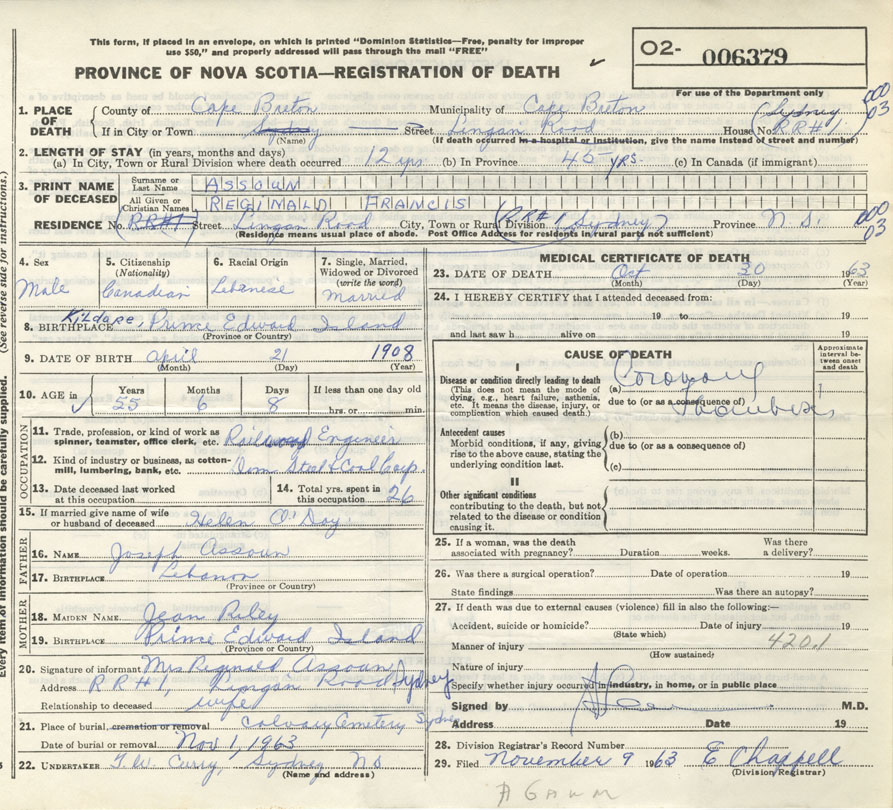 This form, if placed in an envelope, on which is printed "Dominion Statistics—Free, penalty for improper
use $50," and properly addressed will pass through the mail "FREE"
O2- 006379
PROVINCE OF NOVA SCOTIA—REGISTRATION OF DEATH
For use of the Department only
1. PLACE OF DEATH County of Cape Breton Municipality of Cape Breton
If in City or Town Sydney Street Lingan Road House No. RR#1 Sydney 000 03
(Name) (If death occurred in a hospital or institution, give the name instead of street and number)
2. LENGTH OF STAY (in years, months and days)
(a) In City, Town or Rural Division where death occurred 12 yrs (b) In Province 45 yrs. (c) In Canada (if immigrant)
3. PRINT NAME OF DECEASED Surname or Last Name ASSOUN
All Given or Christian Names REGINALD FRANCIS
RESIDENCE No. RR#1 Street Lingan Road City, Town or Rural Division RR#1 Sydney Province N.S. 000 03
(Residence means usual place of abode. Post Office Address for residents in rural parts not sufficient)
4. Sex Male
5. Citizenship (Nationality) Canadian
6. Racial Origin Lebanese
7. Single, Married, Widowed or Divorced (write the word) Married
8. BIRTHPLACE Kildare, Prince Edward Island
(Province or Country)
9. DATE OF BIRTH April 21 1908
(Month) (Day) (Year)
10. AGE in Years 55 Months 6 Days 8 If less than one day old
hrs. or min.
OCCUPATION
11. Trade, profession, or kind of work as spinner, teamster, office clerk, etc. Railroad Engineer
12. Kind of industry or business, as cotton-mill, lumbering, bank, etc. Dom Steel & Coal Corp.
13. Date deceased last worked at this occupation
14. Total yrs. spent in this occupation 26
15. If married give name of wife or husband of deceased Helen O'Day
FATHER
16. NAME Joseph Assoun
17. BIRTHPLACE Lebanon
(Province or Country)
MOTHER
18. MAIDEN NAME Jean Riley
19. BIRTHPLACE Prince Edward Island
(Province or Country)
20. Signature of informant Mrs Reginald Assoun
Address RR#1, Lingan Road Sydney
Relationship to deceased wife
21. Place of burial, cremation or removal Calvary Cemetery Sydney
Date of burial or removal Nov 1, 1963
22. UNDERTAKER T.W. Curry, Sydney NS
(Name and address)
MEDICAL CERTIFICATE OF DEATH
23. DATE OF DEATH Oct 30 1963
(Month) (Day) (Year)
24. I HEREBY CERTIFY that I attended deceased from:
19 to 19
and last saw h alive on 19
CAUSE OF DEATH
Approximate interval between onset and death
I
Disease or condition directly leading to death (a) Coronary
(This does not mean the mode of dying, e.g., heart failure, asthenia, etc. It means the disease, injury, or complication which caused death.)
due to (or as a consequence of) Thrombosis
Antecedent causes (b)
Morbid conditions, if any, giving rise to the above cause, stating the underlying condition last.
due to (or as a consequence of)
(c)
II
Other significant conditions
contributing to the death, but not related to the disease or condition causing it.
25. If a woman, was the death associated with pregnancy? Duration weeks. Was there a delivery?
26. Was there a surgical operation? Date of operation 19
State findings Was there an autopsy?
27. If death was due to external causes (violence) fill in also the following:—
Accident, suicide or homicide? Date of injury 19
(State which)
Manner of injury 420.1
(How sustained)
Nature of injury
Specify whether injury occurred in industry, in home, or in public place
Signed by M.D.
Address Date 19
28. Division Registrar's Record Number
29. Filed November 9 1963 E Chappell
(Division Registrar)
(See reverse side for instructions.)
Every item of information should be carefully supplied.